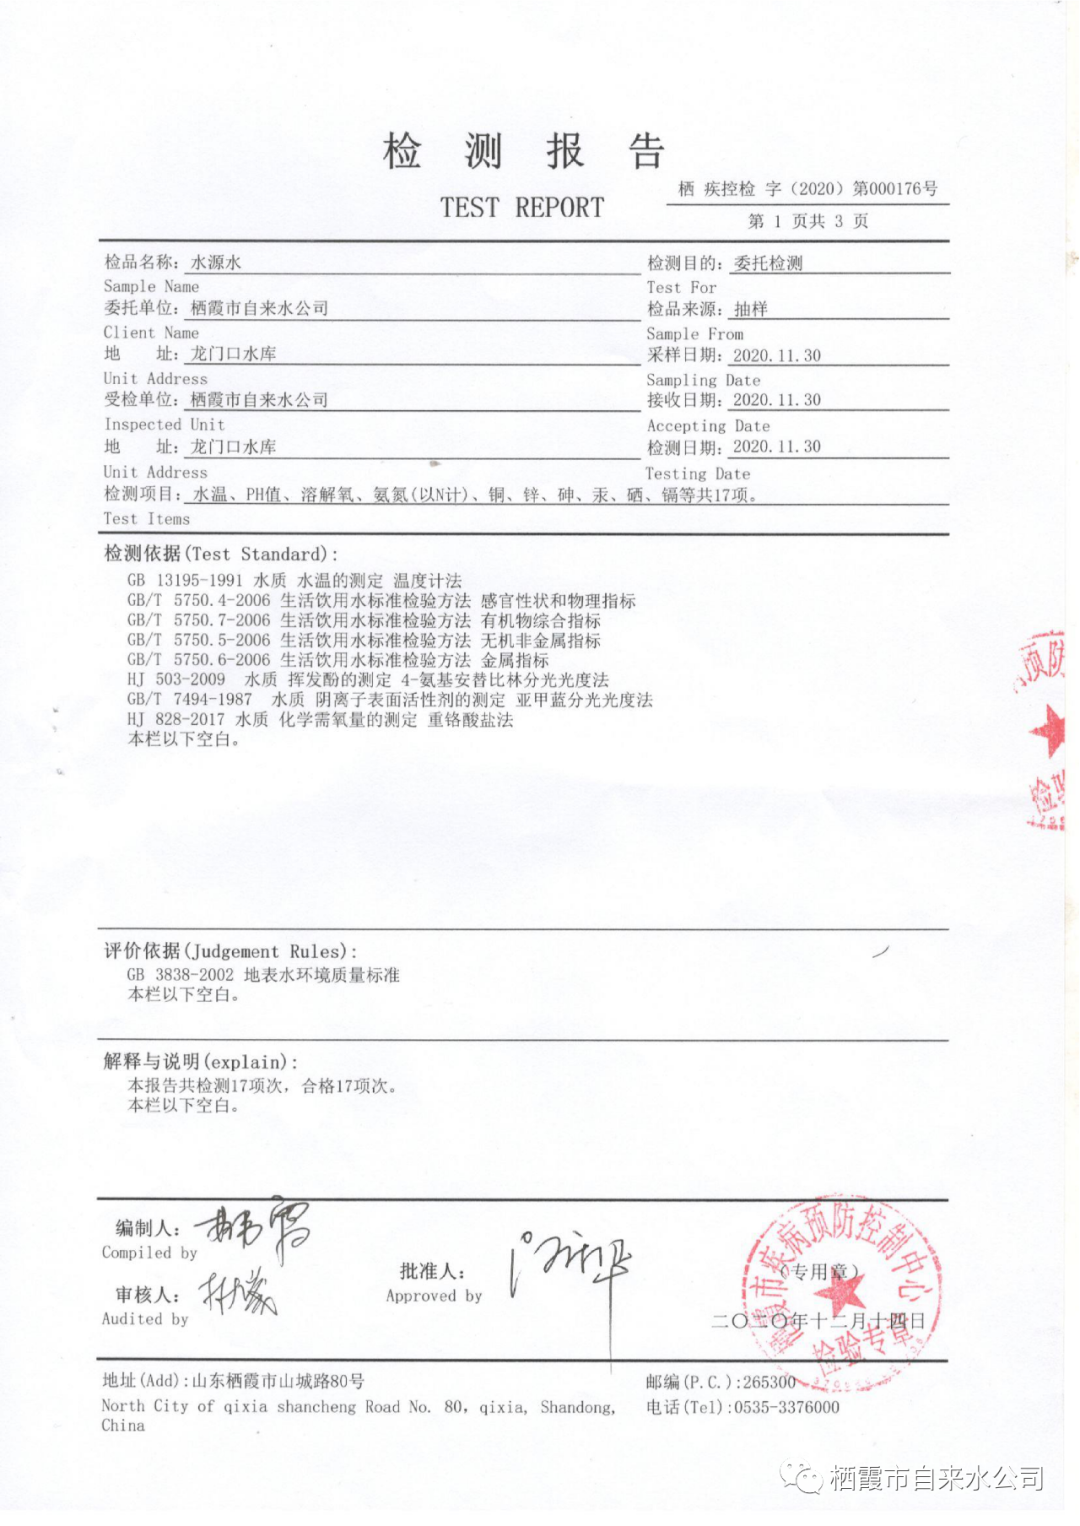 检 测 报 告
TEST REPORT
栖 疾控检 字（2020）第000176号
第 1 页共 3 页
检品名称: 水源水 检测目的: 委托检测
Sample Name Test For
委托单位: 栖霞市自来水公司 检品来源: 抽样
Client Name Sample From
地 址: 龙门口水库 采样日期: 2020.11.30
Unit Address Sampling Date
受检单位: 栖霞市自来水公司 接收日期: 2020.11.30
Inspected Unit Accepting Date
地 址: 龙门口水库 检测日期: 2020.11.30
Unit Address Testing Date
检测项目: 水温、PH值、溶解氧、氨氮(以N计)、铜、锌、砷、汞、硒、镉等共17项。
Test Items
检测依据(Test Standard):
GB 13195-1991 水质 水温的测定 温度计法
GB/T 5750.4-2006 生活饮用水标准检验方法 感官性状和物理指标
GB/T 5750.7-2006 生活饮用水标准检验方法 有机物综合指标
GB/T 5750.5-2006 生活饮用水标准检验方法 无机非金属指标
GB/T 5750.6-2006 生活饮用水标准检验方法 金属指标
HJ 503-2009 水质 挥发酚的测定 4-氨基安替比林分光光度法
GB/T 7494-1987 水质 阴离子表面活性剂的测定 亚甲蓝分光光度法
HJ 828-2017 水质 化学需氧量的测定 重铬酸盐法
本栏以下空白。
预防
检验
评价依据(Judgement Rules):
GB 3838-2002 地表水环境质量标准
本栏以下空白。
解释与说明(explain):
本报告共检测17项次, 合格17项次。
本栏以下空白。
编制人:
Compiled by
审核人:
Audited by
批准人:
Approved by
栖霞市疾病预防控制中心
（专用章）
二〇二〇年十二月十四日
检验专章
地址(Add):山东栖霞市山城路80号 邮编(P.C.):265300
North City of qixia shancheng Road No. 80, qixia, Shandong, 电话(Tel):0535-3376000
China
栖霞市自来水公司